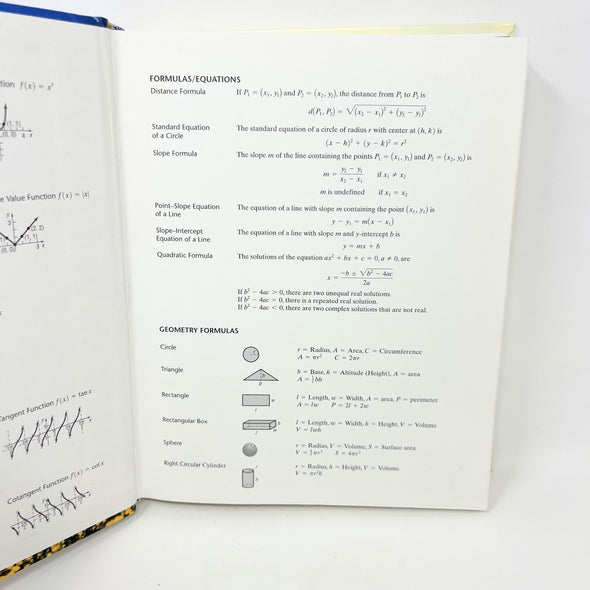 tion f(x) = x³
(1, 1)
(0, 0) 4 x
e Value Function f(x) = |x|
y
3
(2, 2)
(1, 1)
3 x
(0, 0)
Tangent Function f(x) = tan x
Cotangent Function f(x) = cot x
FORMULAS/EQUATIONS
Distance Formula If P₁ = (x₁, y₁) and P₂ = (x₂, y₂), the distance from P₁ to P₂ is
d(P₁, P₂) = √(x₂ − x₁)² + (y₂ − y₁)²
Standard Equation The standard equation of a circle of radius r with center at (h, k) is
of a Circle
(x − h)² + (y − k)² = r²
Slope Formula The slope m of the line containing the points P₁ = (x₁, y₁) and P₂ = (x₂, y₂) is
m = y₂ − y₁ / x₂ − x₁ if x₁ ≠ x₂
m is undefined if x₁ = x₂
Point–Slope Equation The equation of a line with slope m containing the point (x₁, y₁) is
of a Line
y − y₁ = m(x − x₁)
Slope–Intercept The equation of a line with slope m and y-intercept b is
Equation of a Line
y = mx + b
Quadratic Formula The solutions of the equation ax² + bx + c = 0, a ≠ 0, are
x = −b ± √b² − 4ac / 2a
If b² − 4ac > 0, there are two unequal real solutions.
If b² − 4ac = 0, there is a repeated real solution.
If b² − 4ac < 0, there are two complex solutions that are not real.
GEOMETRY FORMULAS
Circle r r = Radius, A = Area, C = Circumference
A = πr² C = 2πr
Triangle h b = Base, h = Altitude (Height), A = area
b A = ½bh
Rectangle w l = Length, w = Width, A = area, P = perimeter
l A = lw P = 2l + 2w
Rectangular Box h w l = Length, w = Width, h = Height, V = Volume
l V = lwh
Sphere r = Radius, V = Volume, S = Surface area
V = 4/3πr³ S = 4πr²
Right Circular Cylinder r r = Radius, h = Height, V = Volume
h V = πr²h